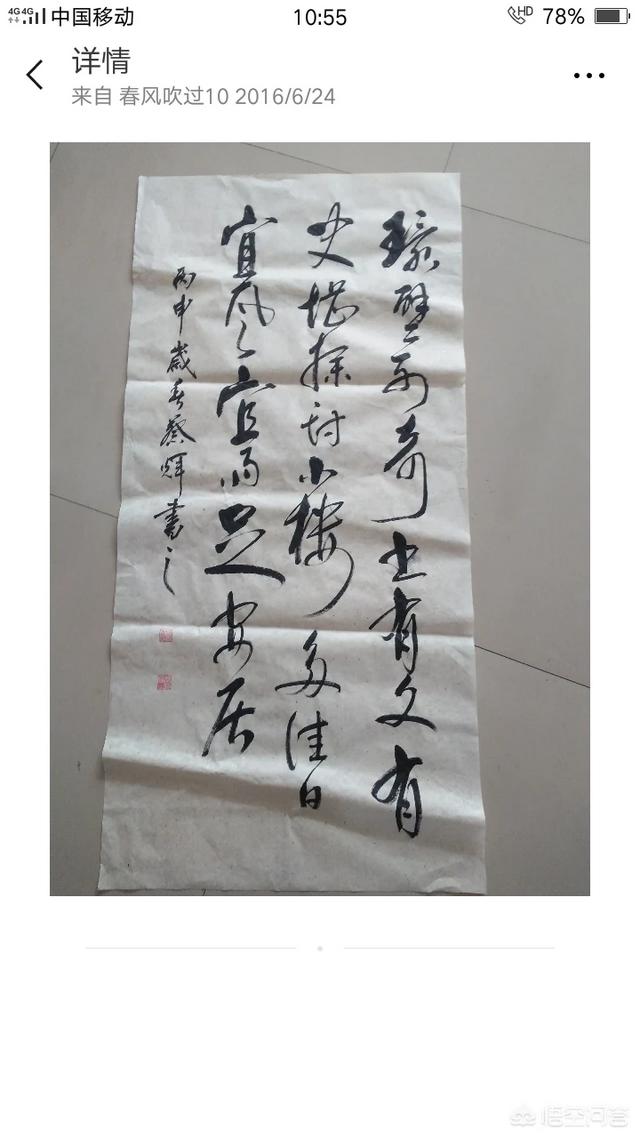 4G4G 中国移动 10:55 HD 78%
详情
来自 春风吹过10 2016/6/24
環壁列奇书有文有
史堪探讨小楼多佳日
宜风宜雨足安居
丙申歲春蔡辉書之
悟空问答